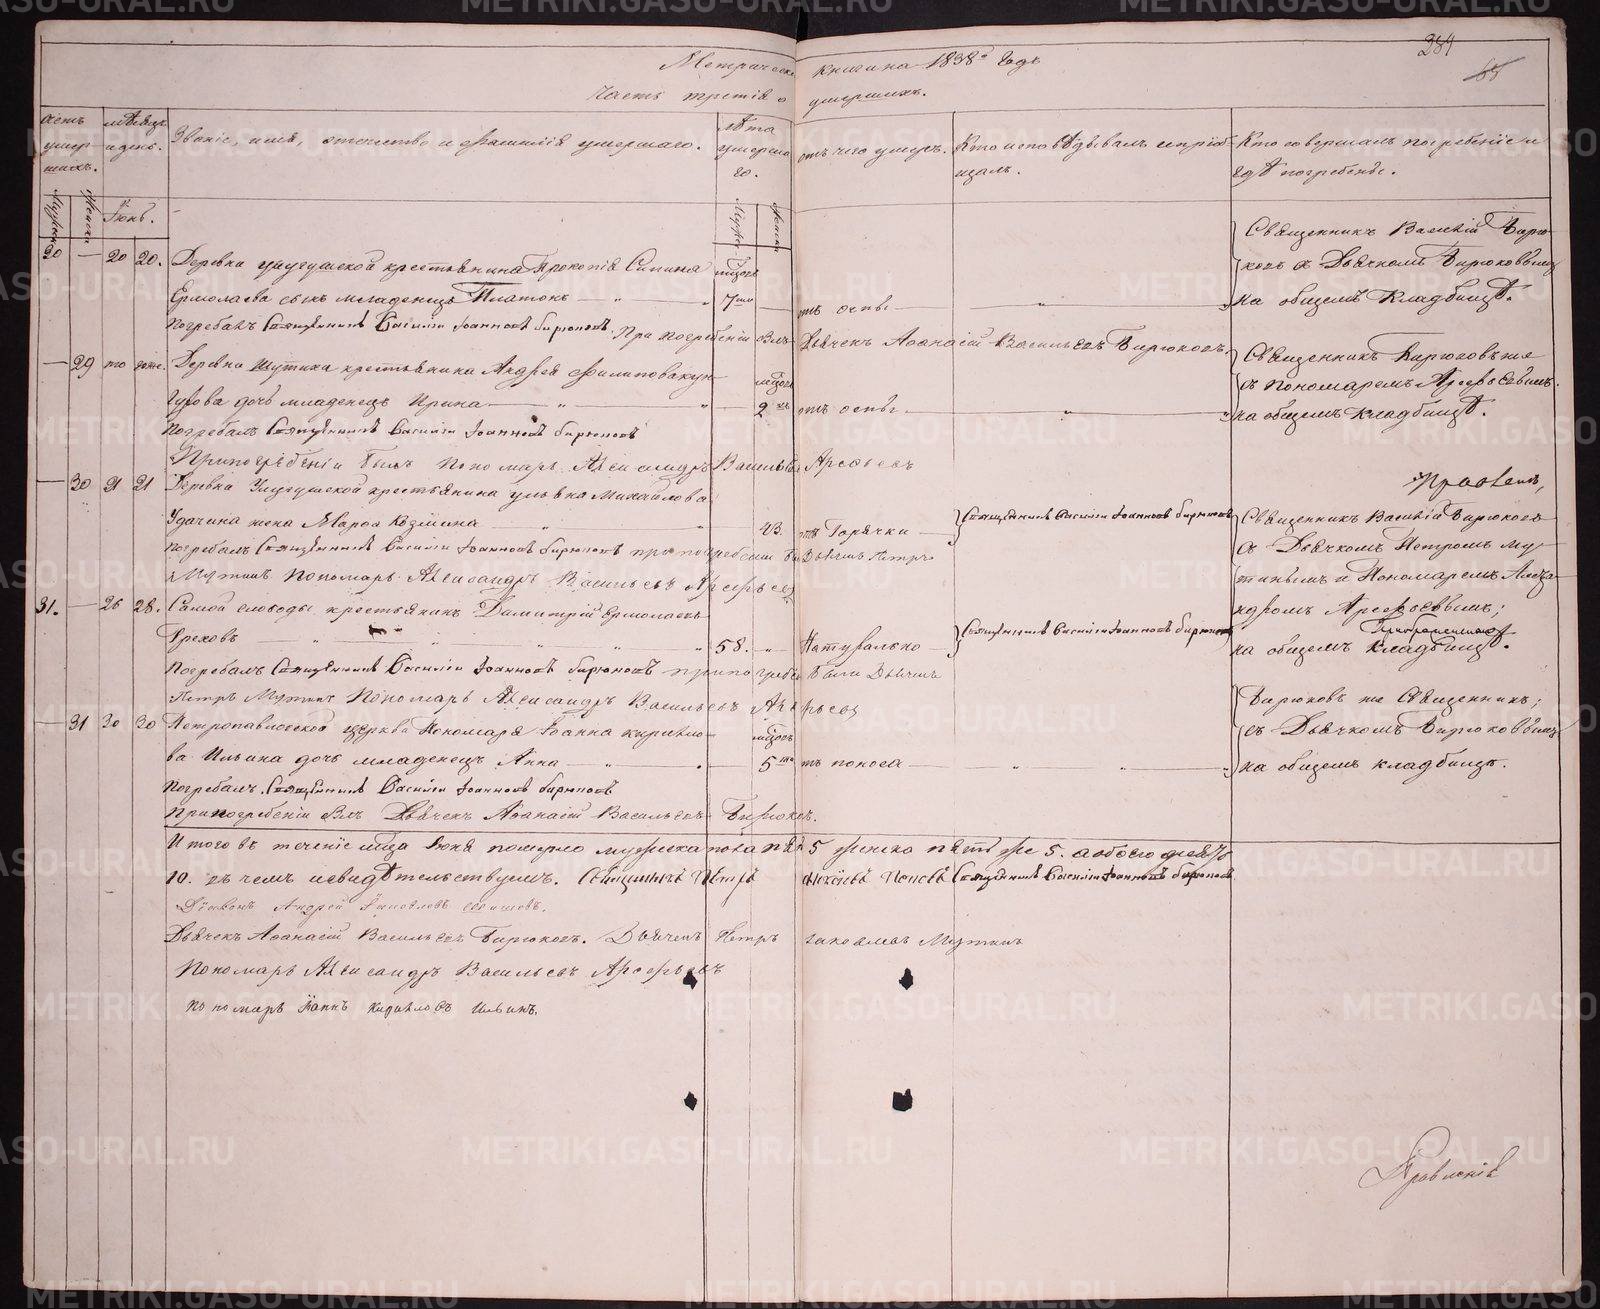 Метрической книги на 1838й годъ
284
65
Часть третія о умершихъ.
Счетъ умершихъ.
мѣсяцъ и день.
Званіе, имя, отечество и фамилія умершаго.
Лѣта умершаго.
отъ чего умеръ.
Кто исповѣдывалъ и пріобщалъ.
Кто совершалъ погребеніе и гдѣ погребенъ.
Мужска
Женска
Іюнь.
Мужс
Женска
30 — 20 20. Деревни крестьянина Прокопія Силина
Ермолаева сынъ младенецъ Платонъ — " — " 7ми — отъ оспы — " —
Священникъ Василій Бирюковъ съ Дьячкомъ Бирюковымъ
на общемъ кладбищѣ.
погребалъ Священникъ Василій Іоанновъ Бирюковъ. При погребеніи былъ Дьячекъ Аѳанасій Васильевъ Бирюковъ.
— 29 то же. Деревни Шутина крестьянина Андрея Филипова
дочь младенецъ Ирина — " — " — 2хъ отъ оспы — " —
Священникъ Бирюковъ же
съ пономаремъ Арсеньевымъ.
на общемъ кладбищѣ.
погребалъ Священникъ Василій Іоанновъ Бирюковъ
При погребеніи былъ пономарь Александръ Васильевъ Арсеньевъ
— 30 21 21 Деревни крестьянина Ульяна Михайлова
Удачина жена Марѳа Козмина — " — " 43. отъ Горячки
Священникъ Василій Іоанновъ Бирюковъ
Священникъ Василій Бирюковъ
съ Дьячкомъ Петромъ Мутинымъ и Пономаремъ Александромъ Арсеньевымъ;
на общемъ кладбищѣ.
погребалъ Священникъ Василій Іоанновъ Бирюковъ при погребеніи были Дьячекъ Петръ
Мутинъ Пономарь Александръ Васильевъ Арсеньевъ
31. — 26 28. Самой слободы крестьянинъ Димитрій Ермолаевъ
Греховъ — " " " " 58. — " — Натурально
Священникъ Василій Іоанновъ Бирюковъ
погребалъ Священникъ Василій Іоанновъ Бирюковъ при погребеніи были Дьячекъ
Петръ Мутинъ Пономарь Александръ Васильевъ Арсеньевъ
— 31 30 30 Петропавловской церкви Пономаря Іоанна Кирилова Ильина дочь младенецъ Анна — " — " — 5ти отъ поноса — " — " —
Бирюковъ же Священникъ;
съ Дьячкомъ Бирюковымъ
на общемъ кладбищѣ.
погребалъ Священникъ Василій Іоанновъ Бирюковъ
При погребеніи былъ Дьячекъ Аѳанасій Васильевъ Бирюковъ.
Итого въ теченіе мѣсяца Іюня померло мужеска пола пять 5 женска пять же 5. а обоего
10. въ чемъ и свидѣтельствуемъ. Священникъ Петръ Поповъ Священникъ Василій Іоанновъ Бирюковъ
Діаконъ Андрей
Дьячекъ Аѳанасій Васильевъ Бирюковъ. Дьячекъ Петръ Мутинъ
Пономарь Александръ Васильевъ Арсеньевъ
пономарь Іоаннъ Кириловъ Ильинъ.
METRIKI.GASO-URAL.RU